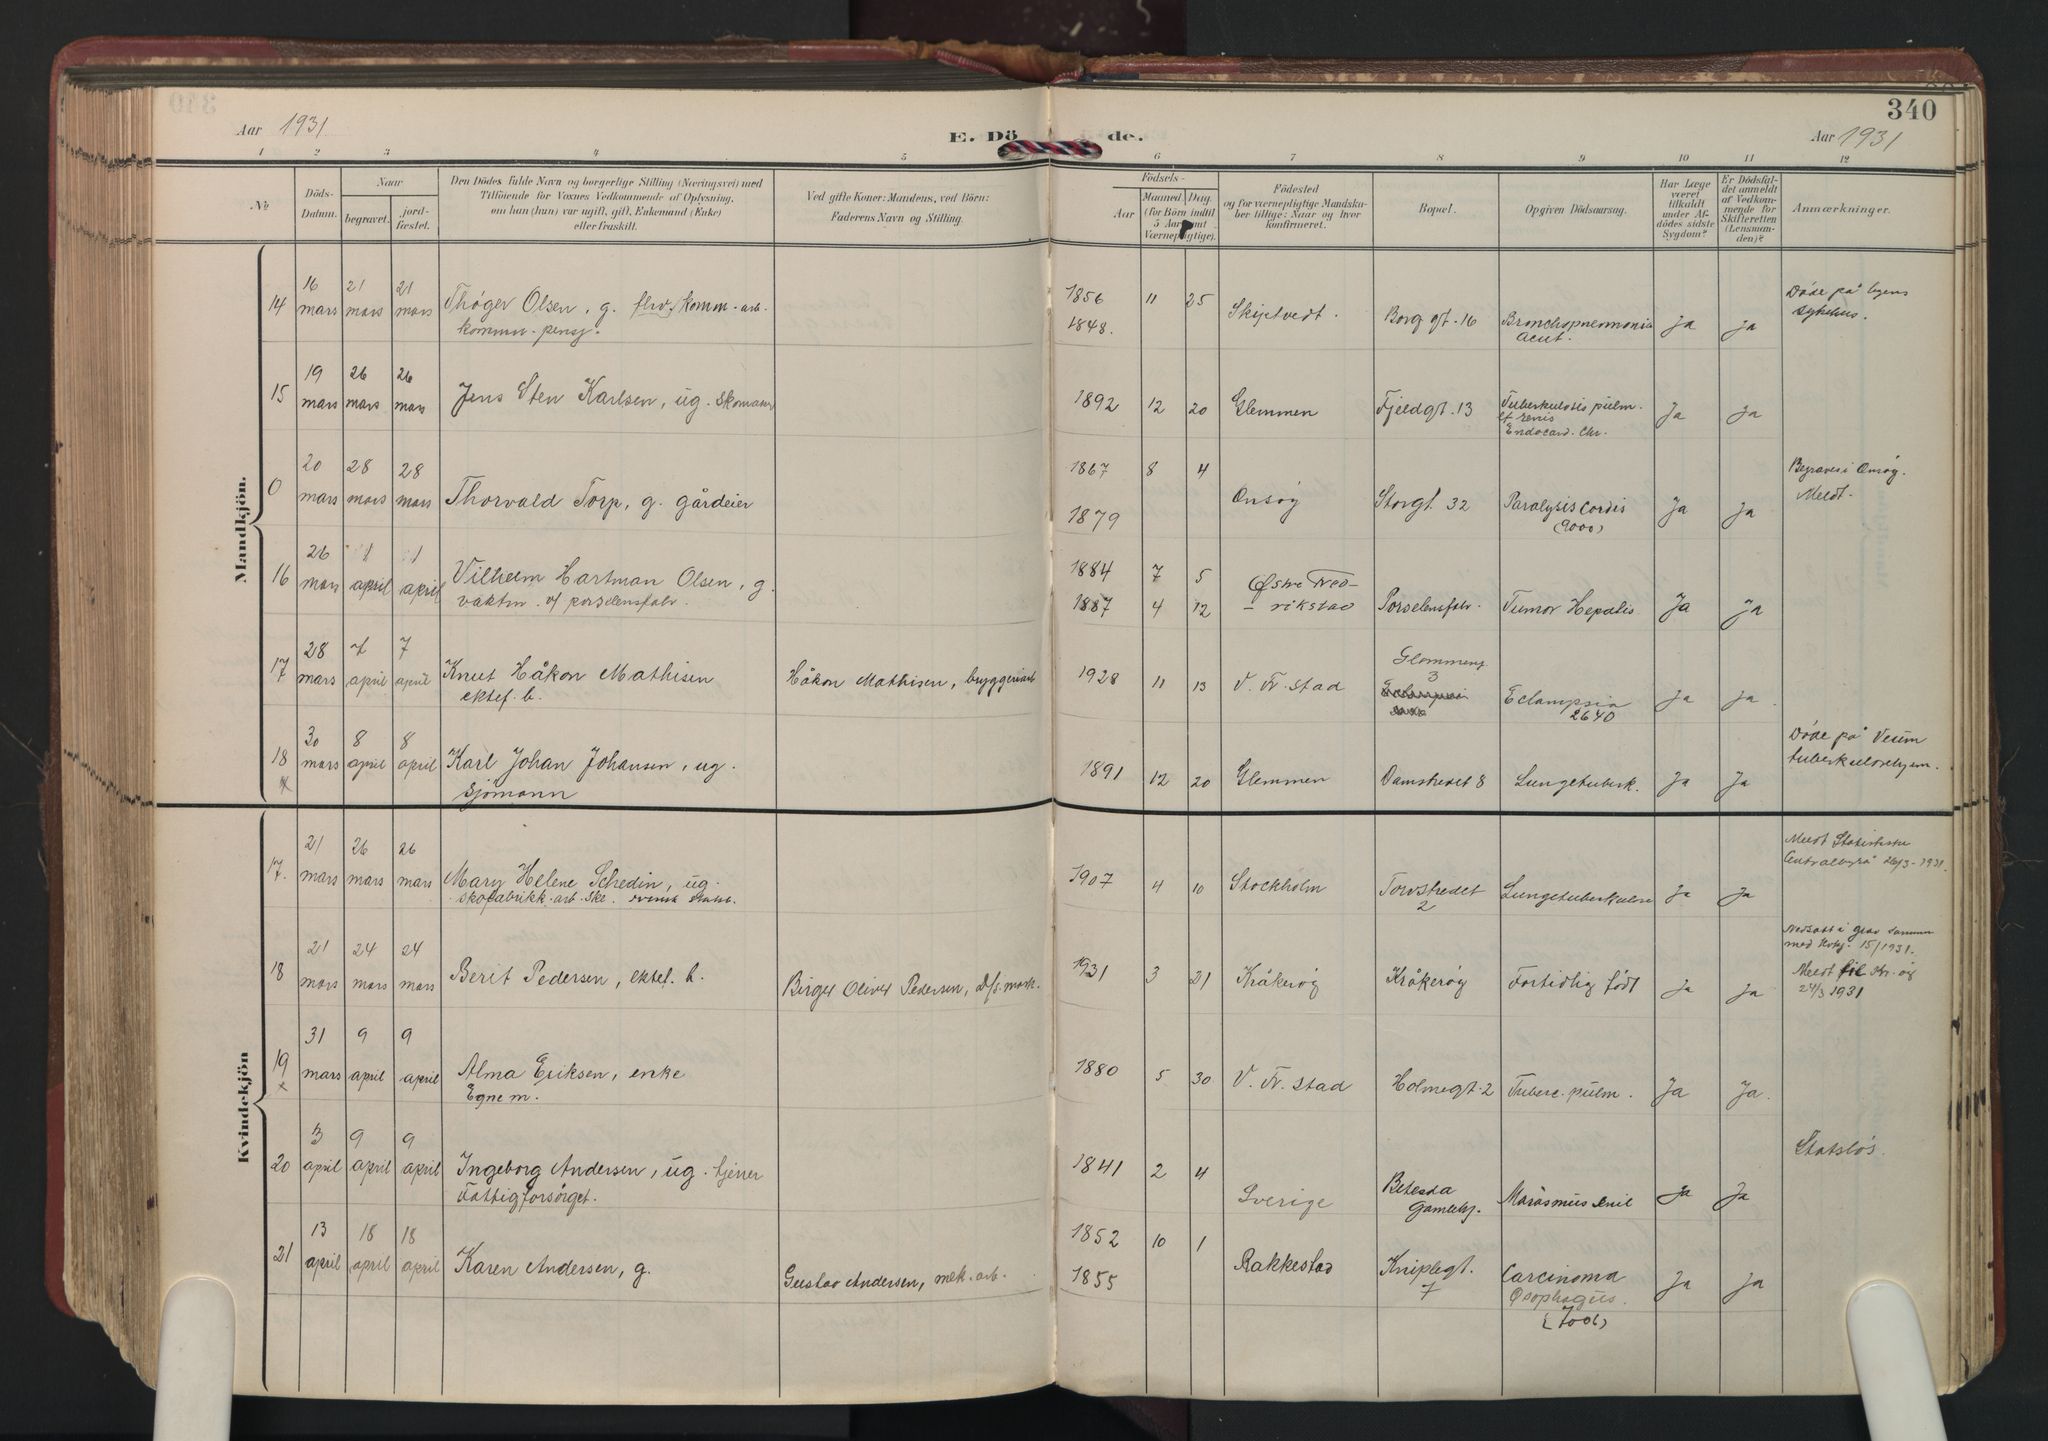 340
Aar 1931 E. Dö de. Aar 1931
1 2 3 4 5 6 7 8 9 10 11 12
No
Döds-Datum.
Naar
begravet.
jord-fæstet.
Den Dödes fulde Navn og borgerlige Stilling (Næringsvei) med
Tilföiende for Voxnes Vedkommende af Oplysning,
om hun (han) var ugift, gift, Enkemand (Enke)
eller fraskilt.
Ved gifte Koner: Mandens, ved Börn:
Faderens Navn og Stilling.
Födsels-
Aar
Maaned Dag.
(for Börn indtil
5 Aar samt
Værnepligtige).
Födested
og for værnepligtige Mandska-
ber tillige: Naar og hvor
konfirmeret.
Bopæl.
Opgiven Dödsaarsag.
Har Læge
været
tilkaldt
under Af-
dödes sidste
Sygdom?
Er Dödsfal-
det anmeldt
af Vedkom-
mende for
Skifteretten
(Lensman-
den)?
Anmærkninger.
Mandkjön.
14 16 mars 21 mars 21 mars Thøger Olsen, g. flrv. komm-arb. 1856 11 25 Skiptvedt. Borg gt. 16 Bronchopneumonia Ja Ja Døde på byens
kommun-pensj. 1848. Acut. sykehus.
15 19 mars 26 mars 26 mars Jens Sten Karlsen, ug. skomaker 1892 12 20 Glemmen Fjeldgt. 13 Tuberkulosis pulm. Ja Ja
et renis
Endocard. Chr.
0 20 mars 28 mars 28 mars Thorvald Torp, g. gårdeier 1867 8 4 Onsøy Storgt. 32 Paralysis Cordis Ja Ja Begraves i Onsøy.
1879 (9000) Meldt.
16 26 mars 1 april 1 april Vilhelm Hartman Olsen, g. 1884 7 5 Østre Fred-
vaktm. v/ porselensfabr. 1887 4 12 rikstad Porselensfabr. Tumor Hepatis Ja Ja
17 28 mars 7 april 7 april Knut Håkon Mathisen Håkon Mathisen, bryggeriarb 1928 11 13 V. Fr. stad Glommeng. 3 Eclampsia Ja Ja
ektef. b. 2640
18 30 mars 8 april 8 april Karl Johan Johansen, ug. 1891 12 20 Glemmen Damstredet 8 Lungetuberk. Ja Ja Døde på Veum
x sjømann tuberkulosehjem.
Kvindekjön
17. 21 mars 26 mars 26 mars Mary Helene Schedin, ug. 1907 4 10 Stockholm Torvstredet 2 Lungetuberkulose Ja Ja Meldt Statistiske
skofabrikk-arb.ske. svensk Centralbyrå 26/3-1931.
18 21 mars 24 mars 24 mars Berit Pedersen, ektef. b. Birger Oliver Pedersen, D/s. mask. 1931 3 21 Kråkerøy Kråkerøy Fortidlig født Ja Ja Nedsatt i grav sammen
med Kvkj. 15/1931.
Meldt til Kr.øy
24/3 1931
19 31 mars 9 april 9 april Alma Eriksen, enke 1880 5 30 V. Fr. stad Holmegt. 2 Tuberc. pulm. Ja Ja.
x Egne m.
20 3 april 9 april 9 april Ingeborg Andersen, ug. tjener 1841 2 4 Sverige Betesda Marasmus senil Ja Ja Statsløs.
Fattigforsørget. Gamlehj.
21 13 april 18 april 18 april Karen Andersen, g. Gustav Andersen, mek. arb. 1852 10 1 Rakkestad Kniplegt. 7 Carcinoma Ja Ja
1855 Øsophagus.